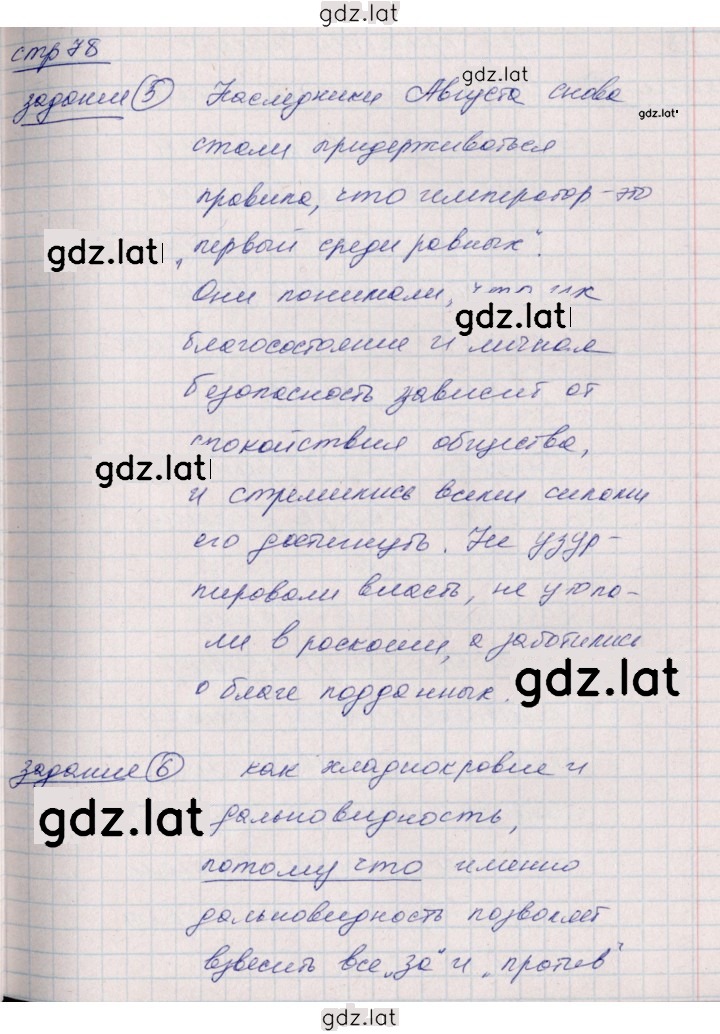 gdz.lat
стр 78
gdz.lat
задание 5 Наследники Августа снова
gdz.lat
стали придерживаться
правила, что император - это
gdz.lat
„первый среди равных“.
Они понимали, что их
gdz.lat
благосостояние и личная
безопасность зависит от
спокойствия общества,
gdz.lat
и стремились всеми силами
его достигнуть. Не узур-
пировали власть, не утопа-
ли в роскоши, а заботились
о благе подданных.
gdz.lat
задание 6 как хладнокровие и
gdz.lat
дальновидность,
потому что именно
дальновидность позволяет
взвесить все „за“ и „против“
gdz.lat